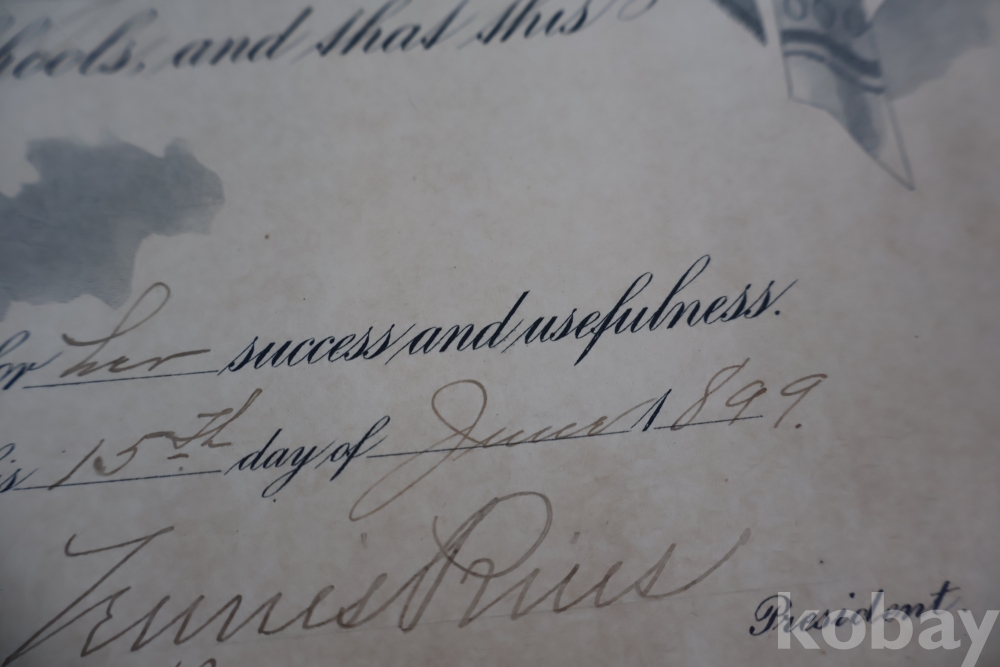 hools, and that this
for her success and usefulness.
is 15th day of June 1899.
President.
kobay